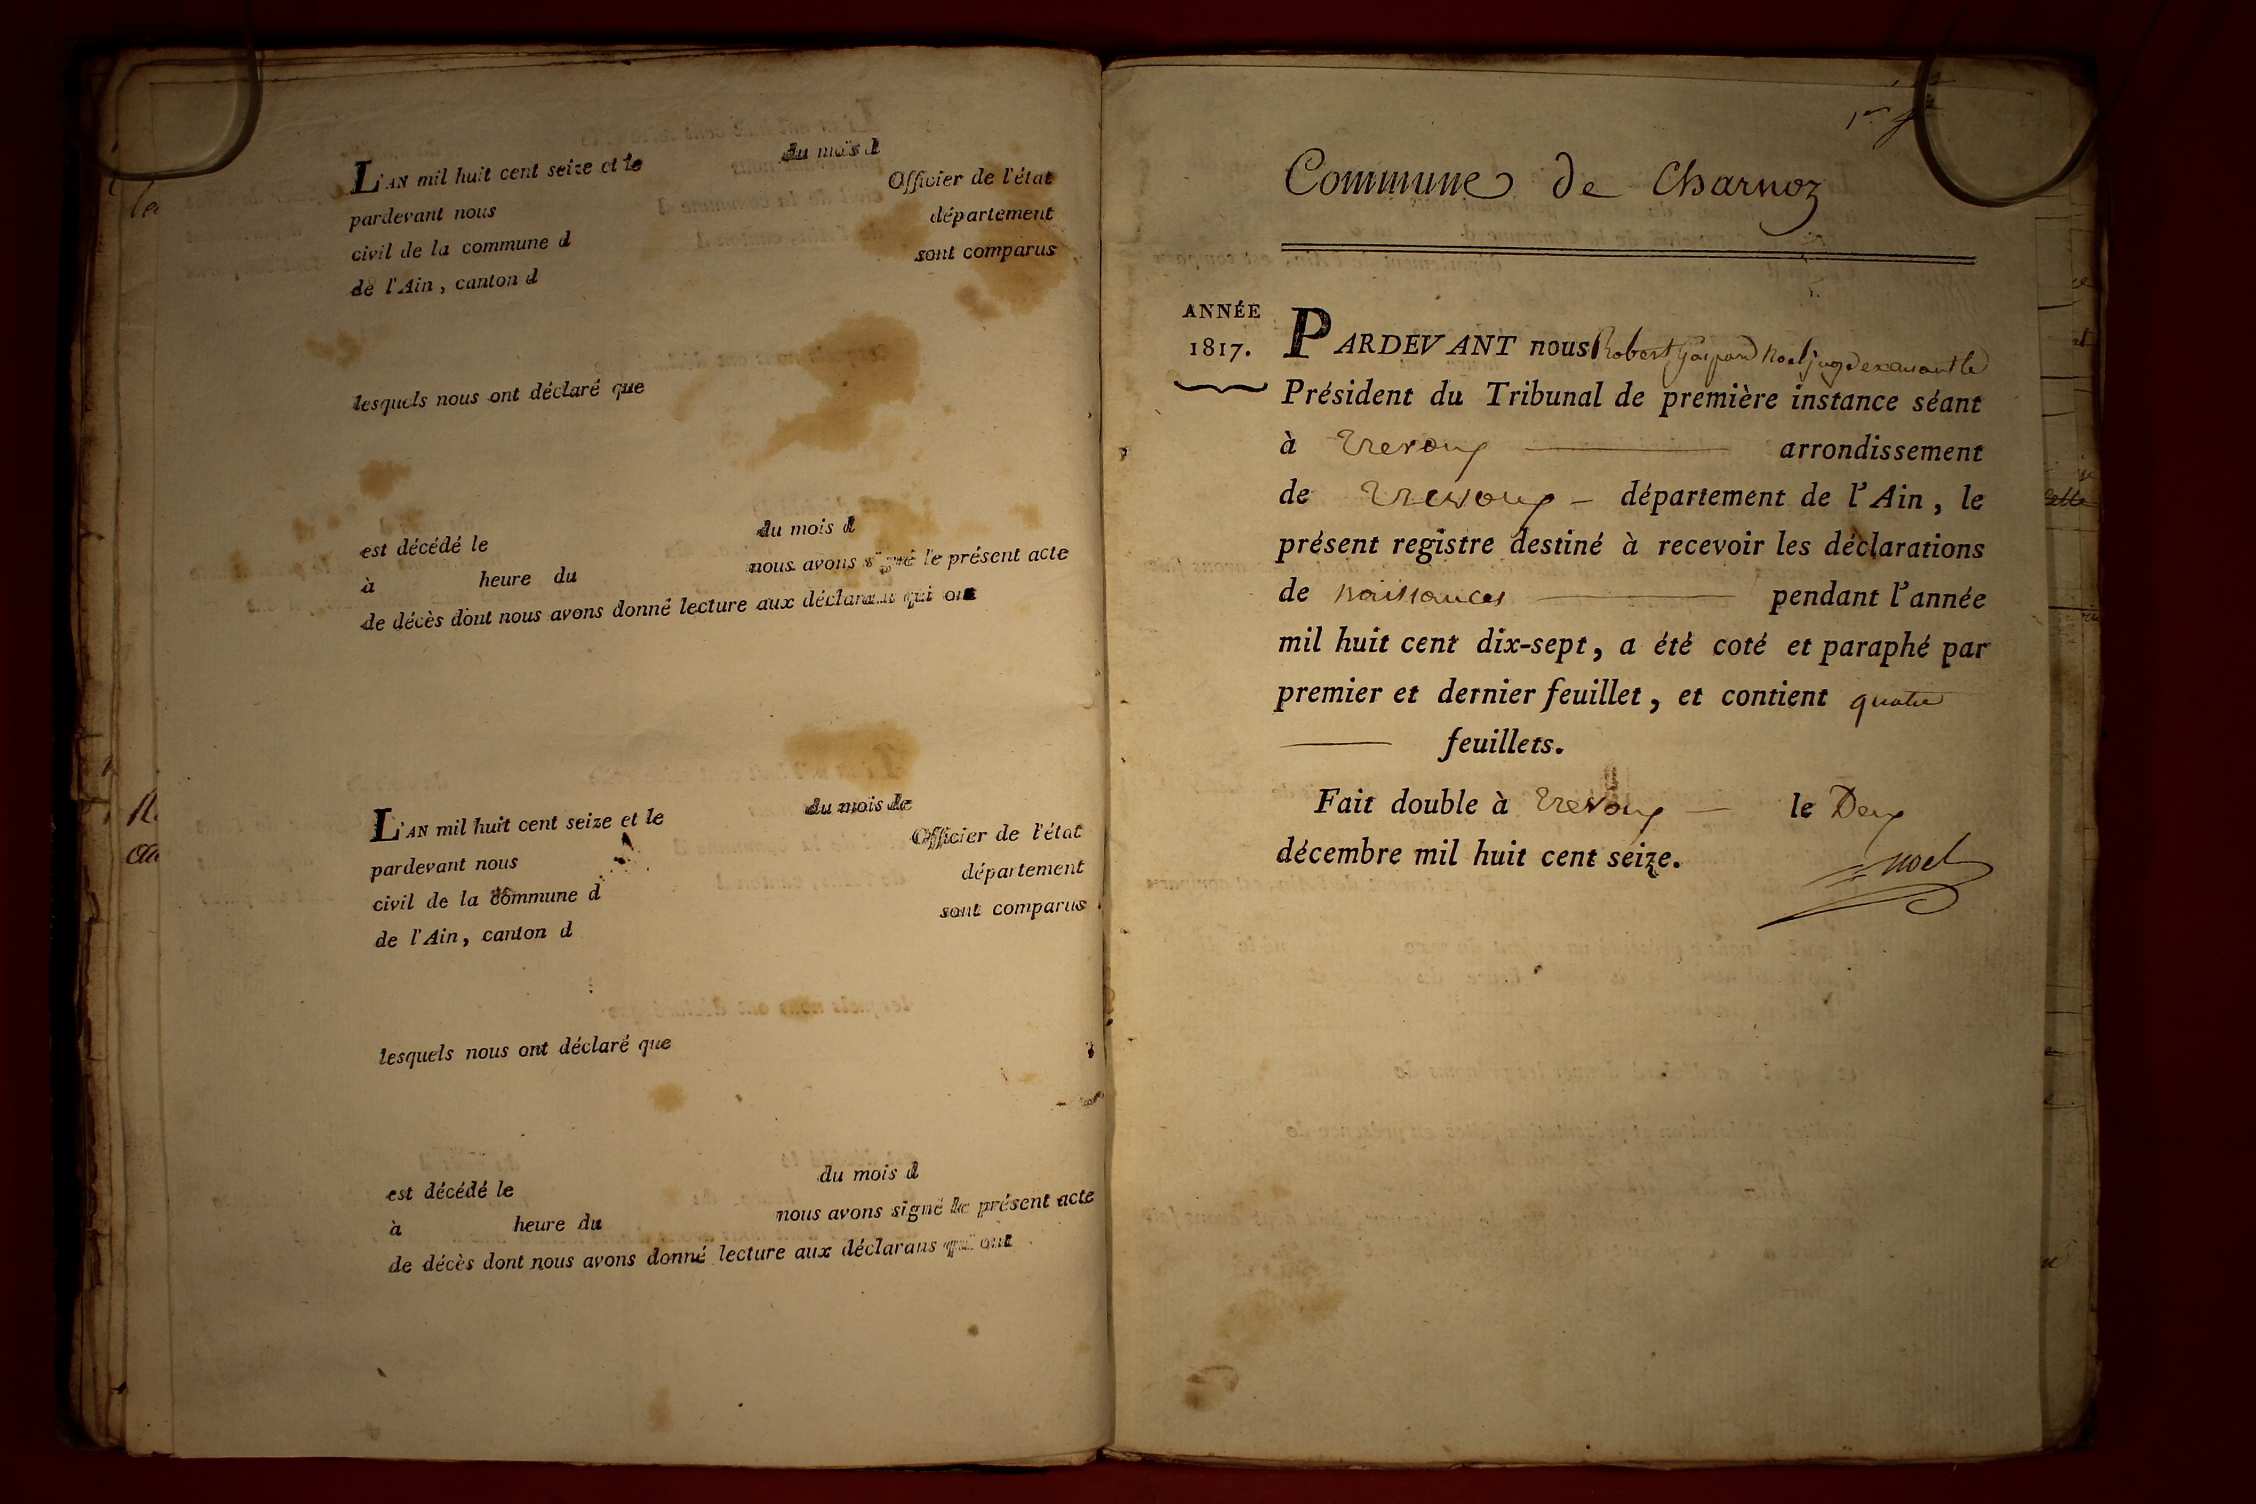 L'AN mil huit cent seize et le du mois d
pardevant nous Officier de l'état
civil de la commune d département
de l'Ain, canton d sont comparus
lesquels nous ont déclaré que
est décédé le du mois d
à heure du nous avons signé le présent acte
de décès dont nous avons donné lecture aux déclarans qui ont
L'AN mil huit cent seize et le du mois de
pardevant nous Officier de l'état
civil de la commune d département
de l'Ain, canton d sont comparus
lesquels nous ont déclaré que
est décédé le du mois d
à heure du nous avons signé le présent acte
de décès dont nous avons donné lecture aux déclarans qui ont
Commune de Charnoz
ANNÉE
1817.
PARDEVANT nous Robert Gaspard Noel juge
Président du Tribunal de première instance séant
à Trevoux arrondissement
de Trevoux département de l'Ain, le
présent registre destiné à recevoir les déclarations
de naissances pendant l'année
mil huit cent dix-sept, a été coté et paraphé par
premier et dernier feuillet, et contient quatre
feuillets.
Fait double à Trevoux le Deux
décembre mil huit cent seize.
Noel